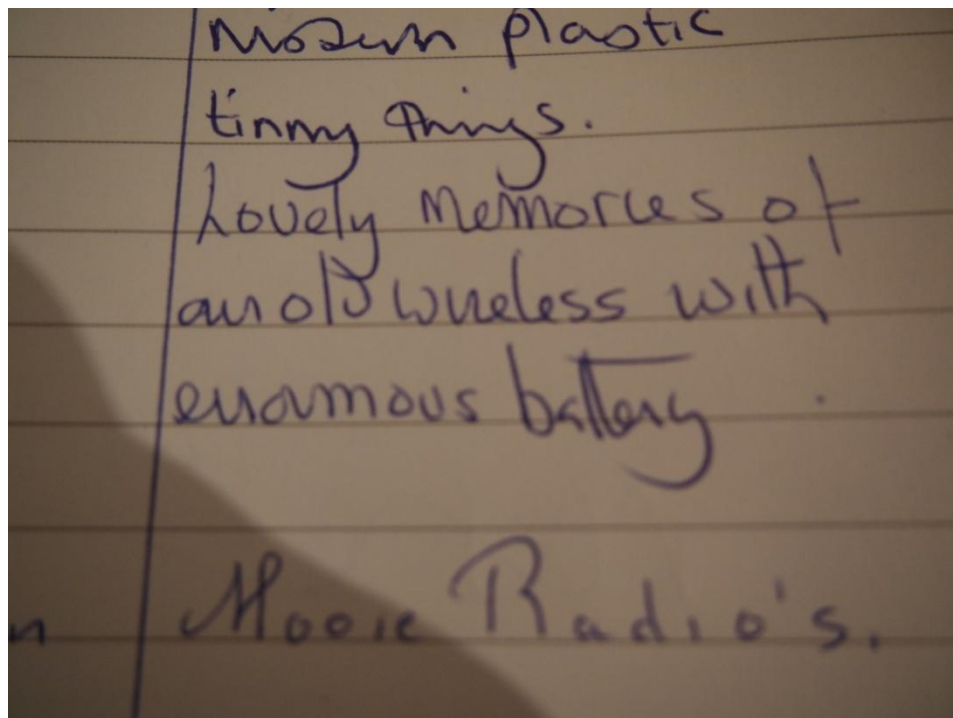 Modern plastic
tinny things.
Lovely memories of
an old wireless with
enormous battery.
n Mooie Radio's.